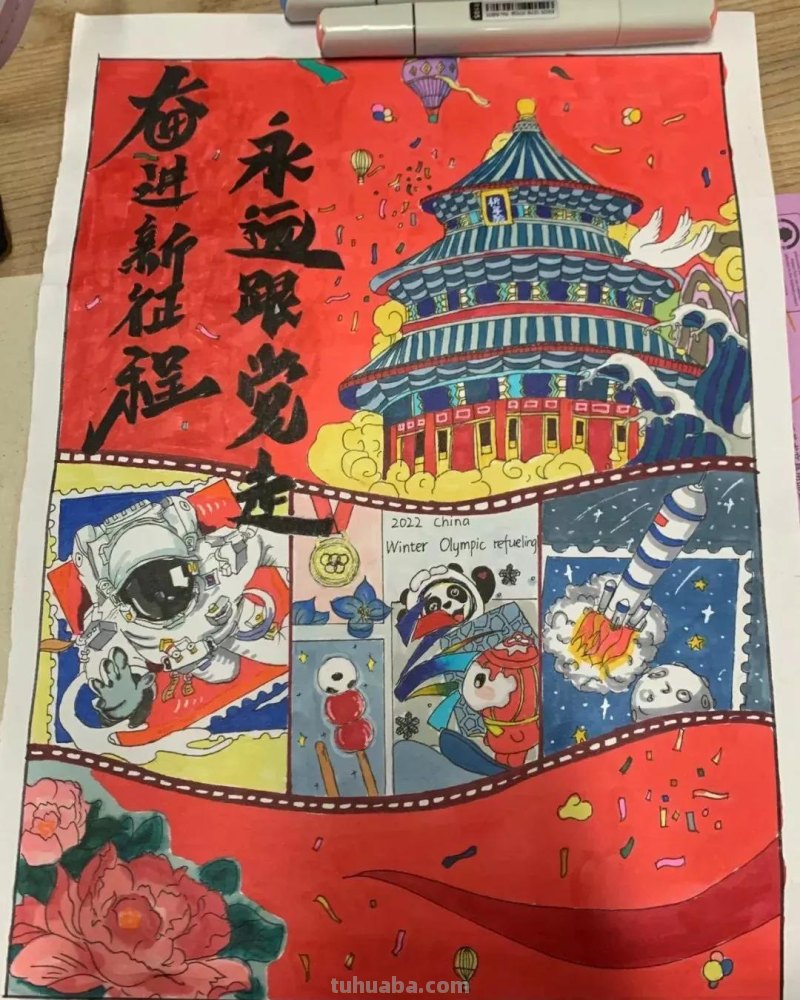 永远跟党走
奋进新征程
祈年殿
2022 China
Winter Olympic refueling
tuhuaba.com